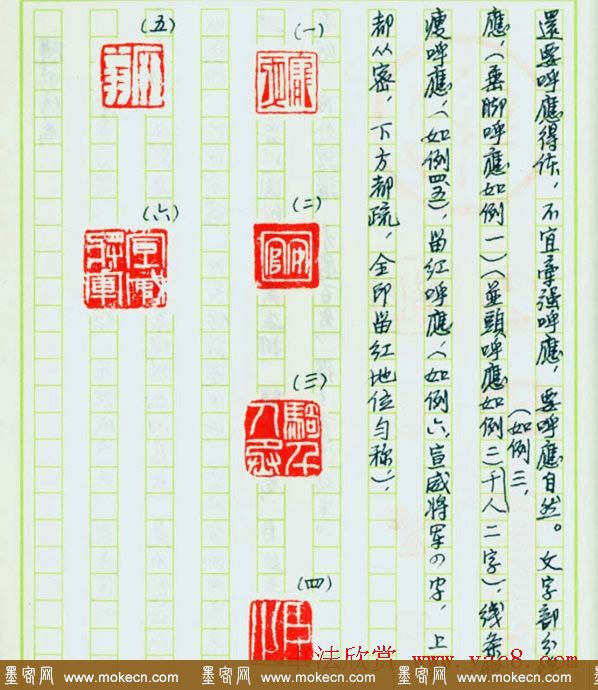 還要呼應得体，不宜牽强呼應，要呼應自然。文字部分
應，（垂脚呼應如例一）（並頭呼應如例二）（如例三，千人二字），线条
瘦呼應，（如例四、五），留红呼應，（如例六，宣威將军四字，上
都从密，下方都疏，全印留红地位匀称），
（一）
（二）
（三）
（四）
（五）
（六）
书法欣赏 www.yac8.com
墨客网 www.mokecn.com 墨客网 www.mokecn.com 墨客网 www.mokecn.com